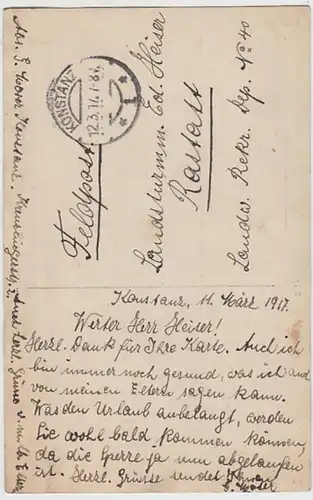 Feldpost.
KONSTANZ
12.3.17. 7-8
* 1 *
Landsturmm. Ed. Heiser
Rastatt
Landw. Rekr. Dep. No 40
Abs. S. Moser, Konstanz.
Konstanz, 11. März 1917.
Werter Herr Heiser!
Herzl. Dank für Ihre Karte. Auch ich
bin immer noch gesund, was ich auch
von meinen Eltern sagen kann.
Was den Urlaub anbelangt, werden
Sie wohl bald kommen können,
da die Sperre ja nun abgelaufen
ist. Herzl. Grüsse sendet
Moser
Auch herzl. Grüsse v. m. lb. Eltern